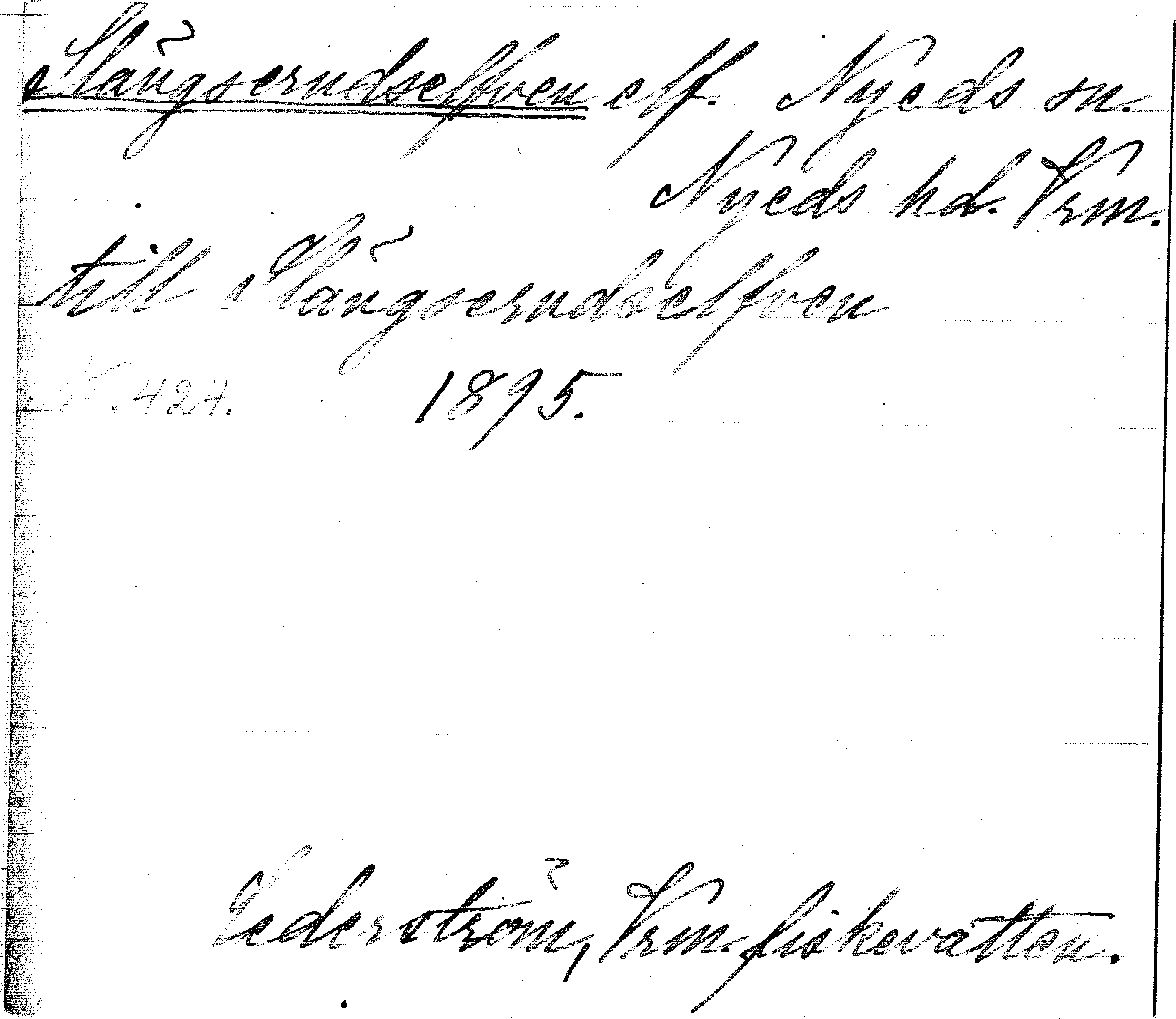 Slängserudselfven elf. Nyeds sn.
Nyeds hd. Vrm.
till Slängserudselfven
N. 424. 1895.
Cederström, Vrm. fiskevatten.